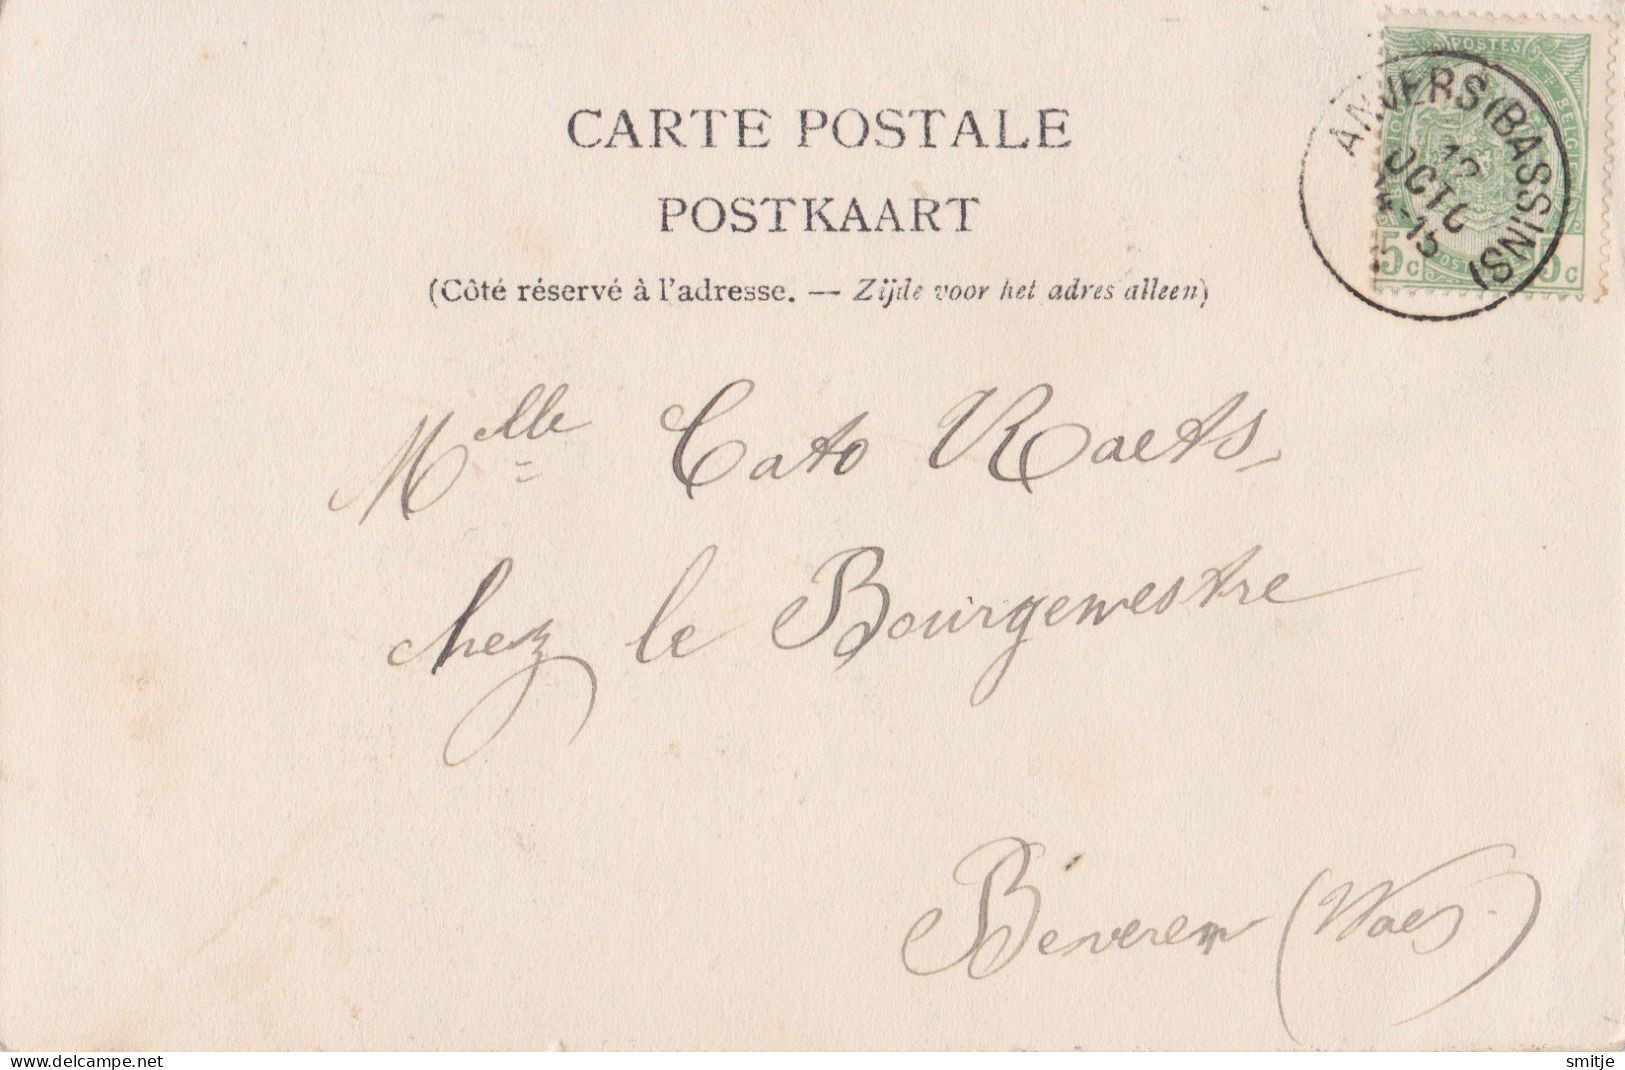 CARTE POSTALE
POSTKAART
(Côté réservé à l'adresse. — Zijde voor het adres alleen)
POSTES
BELGIQUE
5c 5c
ANVERS (BASSINS)
12
OCT
-15
Mlle Cato Raets
chez le Bourgemestre
Béveren (Waes)
smitje